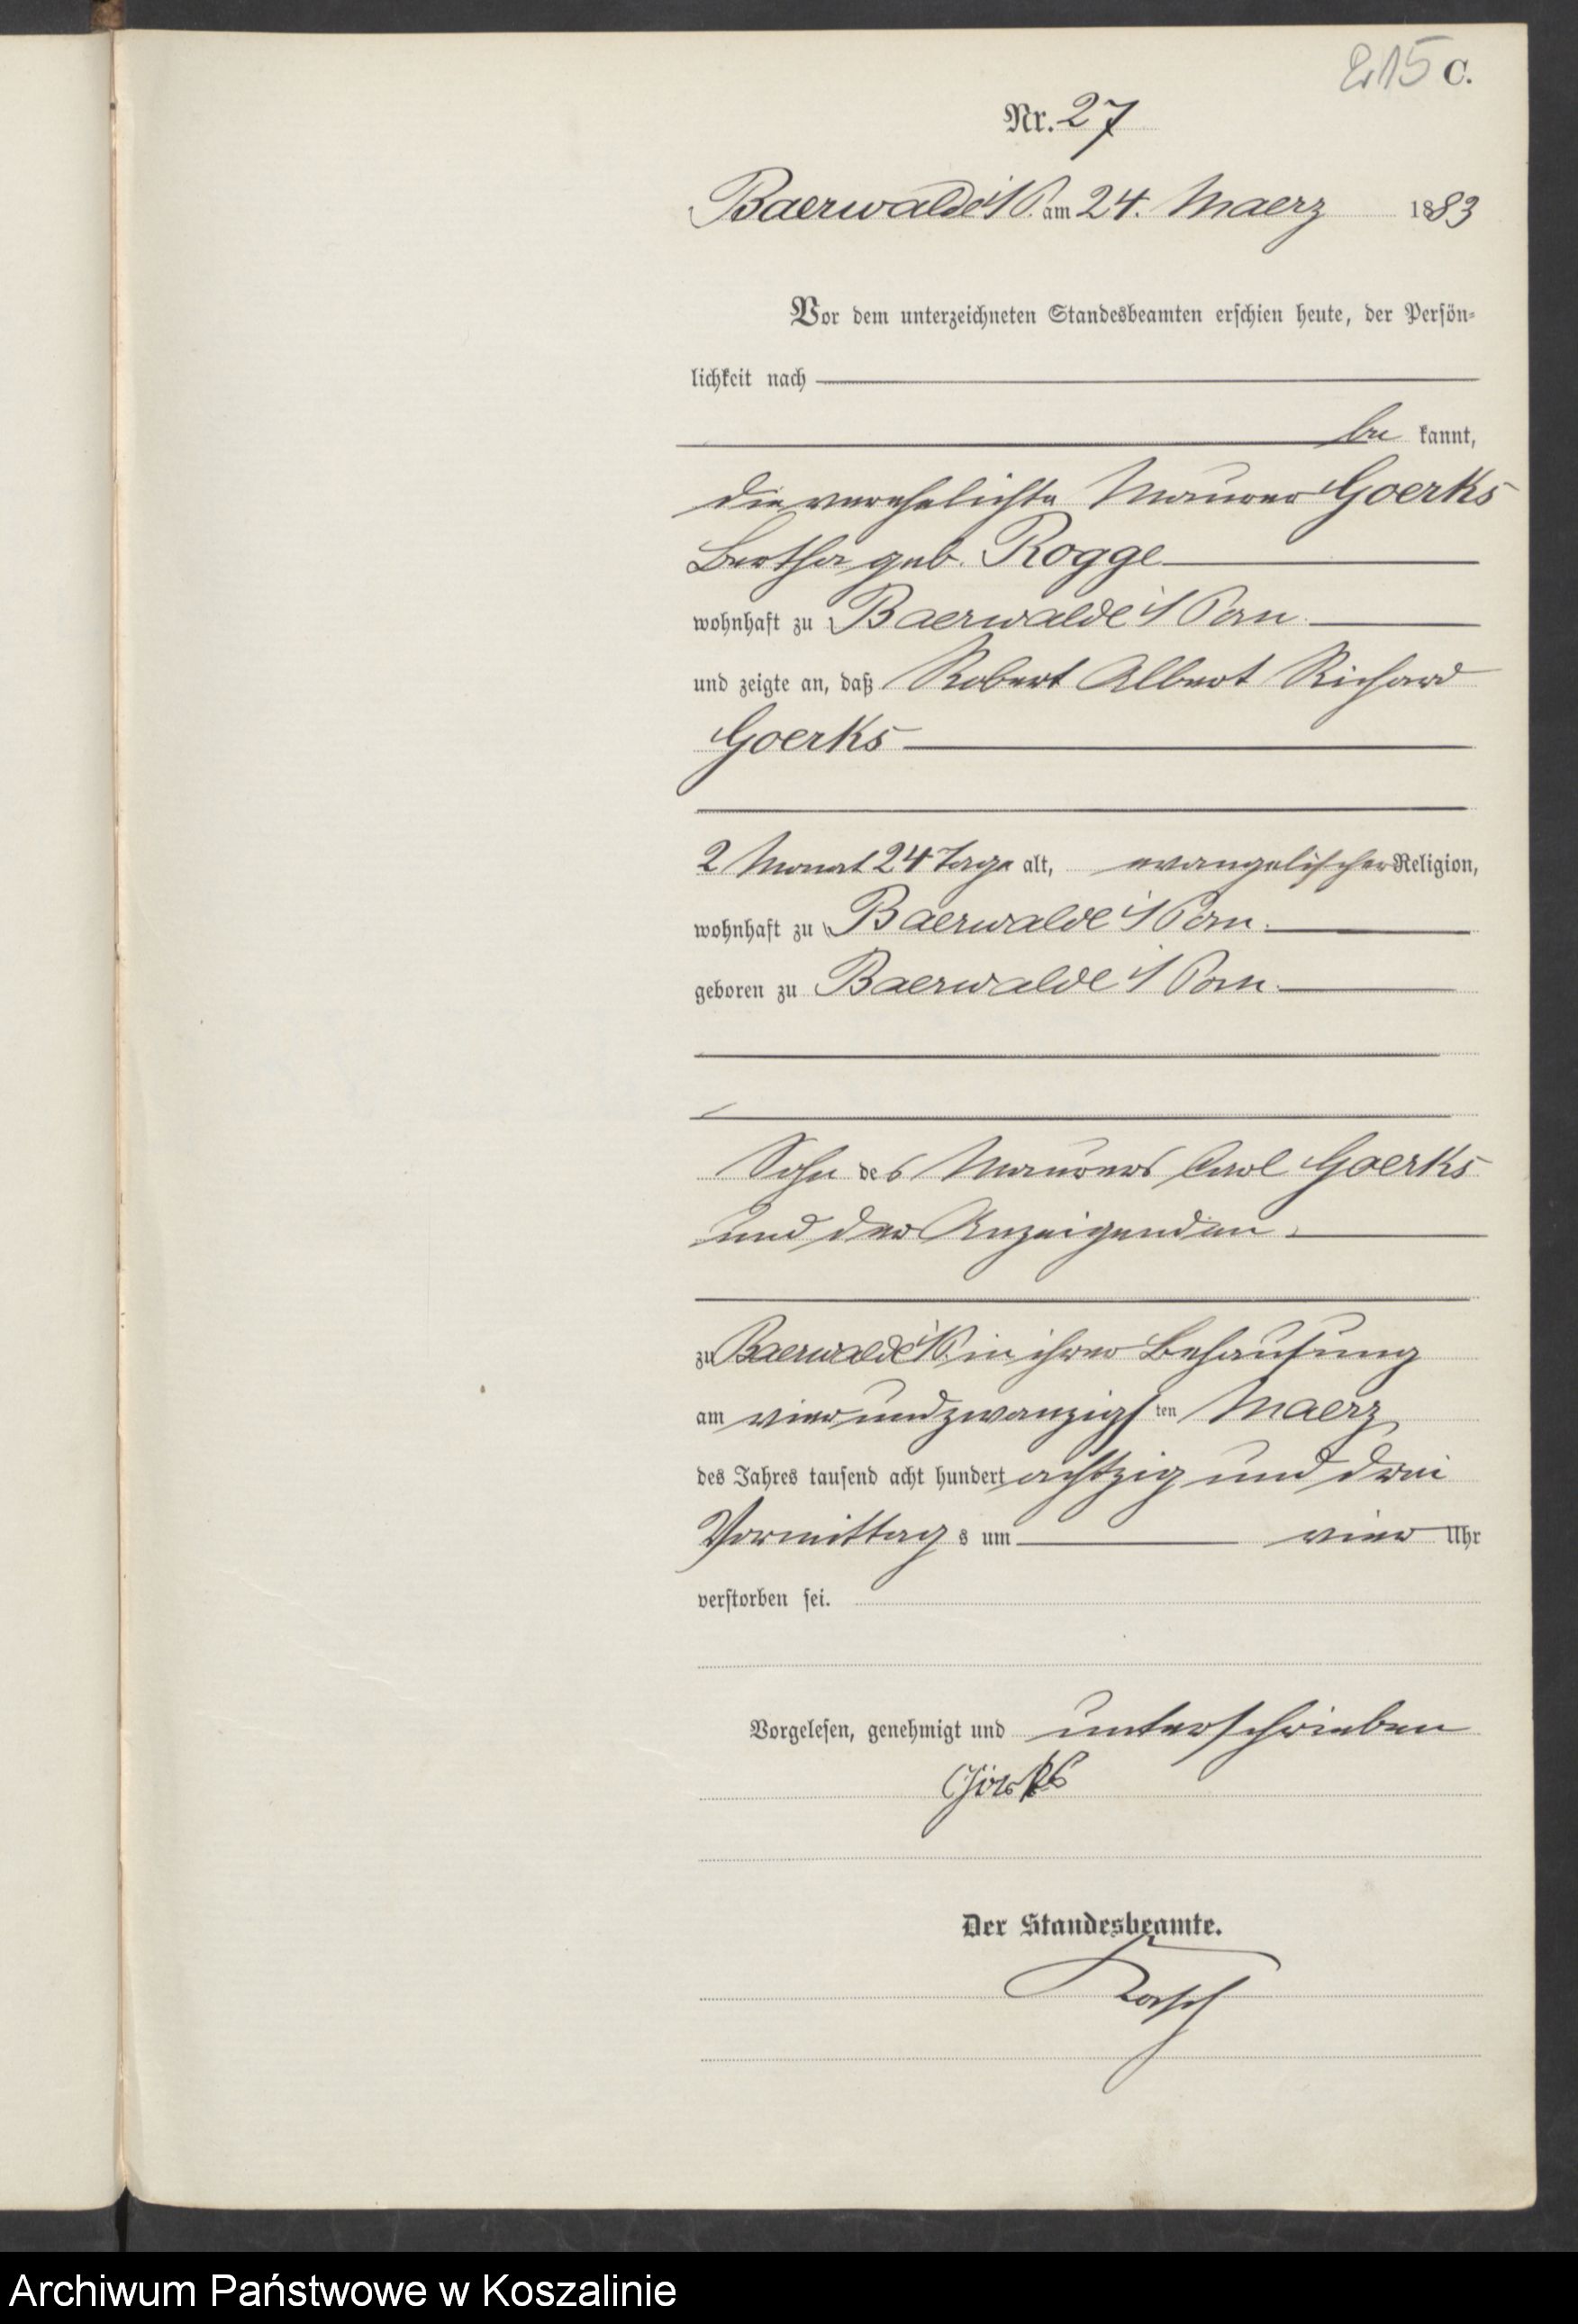 215 C.
Nr. 27
Baerwalde i/P. am 24. Maerz 1883
Vor dem unterzeichneten Standesbeamten erschien heute, der Persön-
lichkeit nach
be kannt,
die verehelichte Maurer Goerks
Bertha geb. Rogge
wohnhaft zu Baerwalde i/Pom.
und zeigte an, daß Robert Albert Richard
Goerks
2 Monat 24 Tage alt, evangelischer Religion,
wohnhaft zu Baerwalde i/Pom.
geboren zu Baerwalde i/Pom.
Sohn des Maurers Carl Goerks
und der Anzeigenden
zu Baerwalde i/P. in ihrer Behausung
am vierundzwanzigsten Maerz
des Jahres tausend acht hundert achtzig und drei
Vormittags um vier Uhr
verstorben sei.
Vorgelesen, genehmigt und unterschrieben
Görks
Der Standesbeamte.
Archiwum Państwowe w Koszalinie